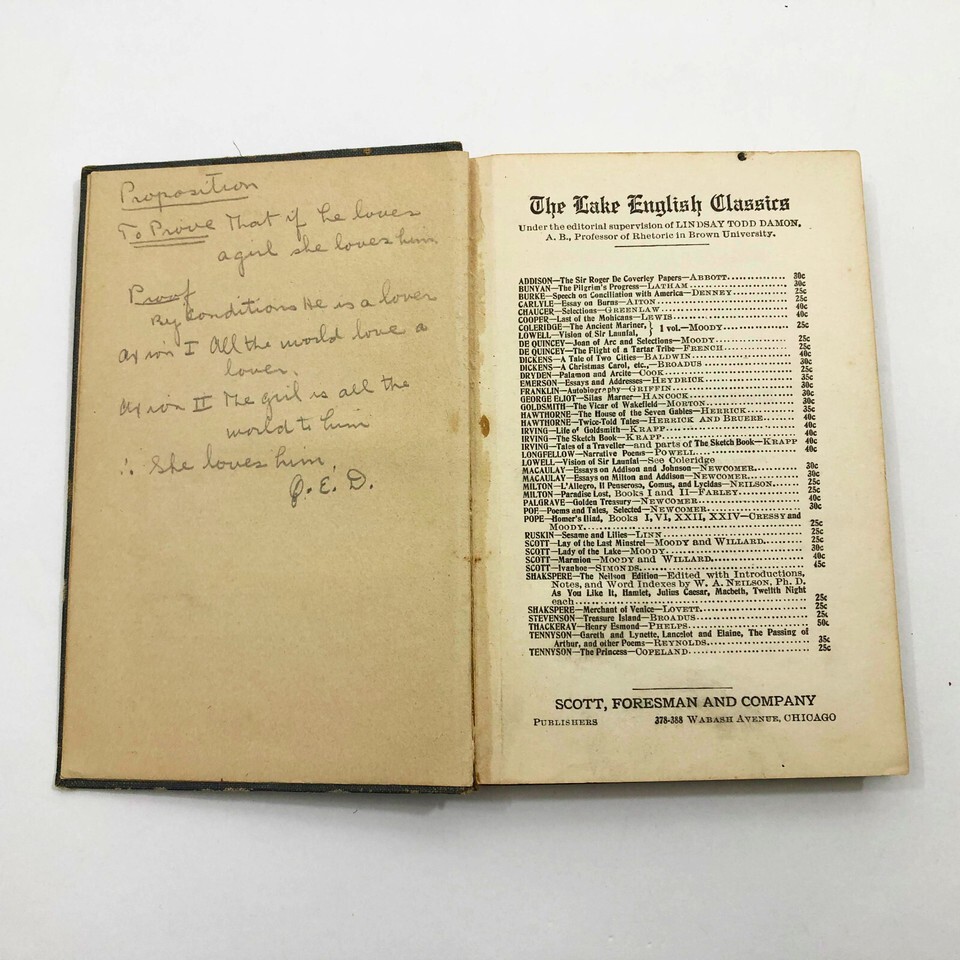 Proposition
To Prove That if he loves
a girl she loves him.
Proof
By conditions He is a lover
Axiom I All the world love a
lover.
Axiom II The girl is all the
world to him
∴ She loves him.
Q. E. D.
The Lake English Classics
Under the editorial supervision of LINDSAY TODD DAMON,
A. B., Professor of Rhetoric in Brown University.
ADDISON—The Sir Roger De Coverley Papers—ABBOTT 30c
BUNYAN—The Pilgrim's Progress—LATHAM 30c
BURKE—Speech on Conciliation with America—DENNEY 25c
CARLYLE—Essay on Burns—AITON 25c
CHAUCER—Selections—GREENLAW 40c
COOPER—Last of the Mohicans—LEWIS 40c
COLERIDGE—The Ancient Mariner, } 1 vol.—MOODY 25c
LOWELL—Vision of Sir Launfal, }
DE QUINCEY—Joan of Arc and Selections—MOODY 25c
DE QUINCEY—The Flight of a Tartar Tribe—FRENCH 25c
DICKENS—A Tale of Two Cities—BALDWIN 40c
DICKENS—A Christmas Carol, etc.,—BROADUS 30c
DRYDEN—Palamon and Arcite—COOK 25c
EMERSON—Essays and Addresses—HEYDRICK 35c
FRANKLIN—Autobiography—GRIFFIN 30c
GEORGE ELIOT—Silas Marner—HANCOCK 30c
GOLDSMITH—The Vicar of Wakefield—MORTON 30c
HAWTHORNE—The House of the Seven Gables—HERRICK 35c
HAWTHORNE—Twice-Told Tales—HERRICK AND BRUERE 40c
IRVING—Life of Goldsmith—KRAPP 40c
IRVING—The Sketch Book—KRAPP 40c
IRVING—Tales of a Traveller—and parts of The Sketch Book—KRAPP 40c
LONGFELLOW—Narrative Poems—POWELL 40c
LOWELL—Vision of Sir Launfal—See Coleridge
MACAULAY—Essays on Addison and Johnson—NEWCOMER 30c
MACAULAY—Essays on Milton and Addison—NEWCOMER 30c
MILTON—L'Allegro, Il Penseroso, Comus, and Lycidas—NEILSON 25c
MILTON—Paradise Lost, Books I and II—FARLEY 25c
PALGRAVE—Golden Treasury—NEWCOMER 40c
POE—Poems and Tales, Selected—NEWCOMER 30c
POPE—Homer's Iliad, Books I, VI, XXII, XXIV—CRESSY and
MOODY 25c
RUSKIN—Sesame and Lilies—LINN 25c
SCOTT—Lay of the Last Minstrel—MOODY AND WILLARD 25c
SCOTT—Lady of the Lake—MOODY 30c
SCOTT—Marmion—MOODY AND WILLARD 40c
SCOTT—Ivanhoe—SIMONDS 45c
SHAKSPERE—The Neilson Edition—Edited with Introductions,
Notes, and Word Indexes by W. A. NEILSON, Ph. D.
As You Like It, Hamlet, Julius Caesar, Macbeth, Twelfth Night
each 25c
SHAKSPERE—Merchant of Venice—LOVETT 25c
STEVENSON—Treasure Island—BROADUS 25c
THACKERAY—Henry Esmond—PHELPS 50c
TENNYSON—Gareth and Lynette, Lancelot and Elaine, The Passing of
Arthur, and other Poems—REYNOLDS 35c
TENNYSON—The Princess—COPELAND 25c
SCOTT, FORESMAN AND COMPANY
PUBLISHERS 378-388 WABASH AVENUE, CHICAGO